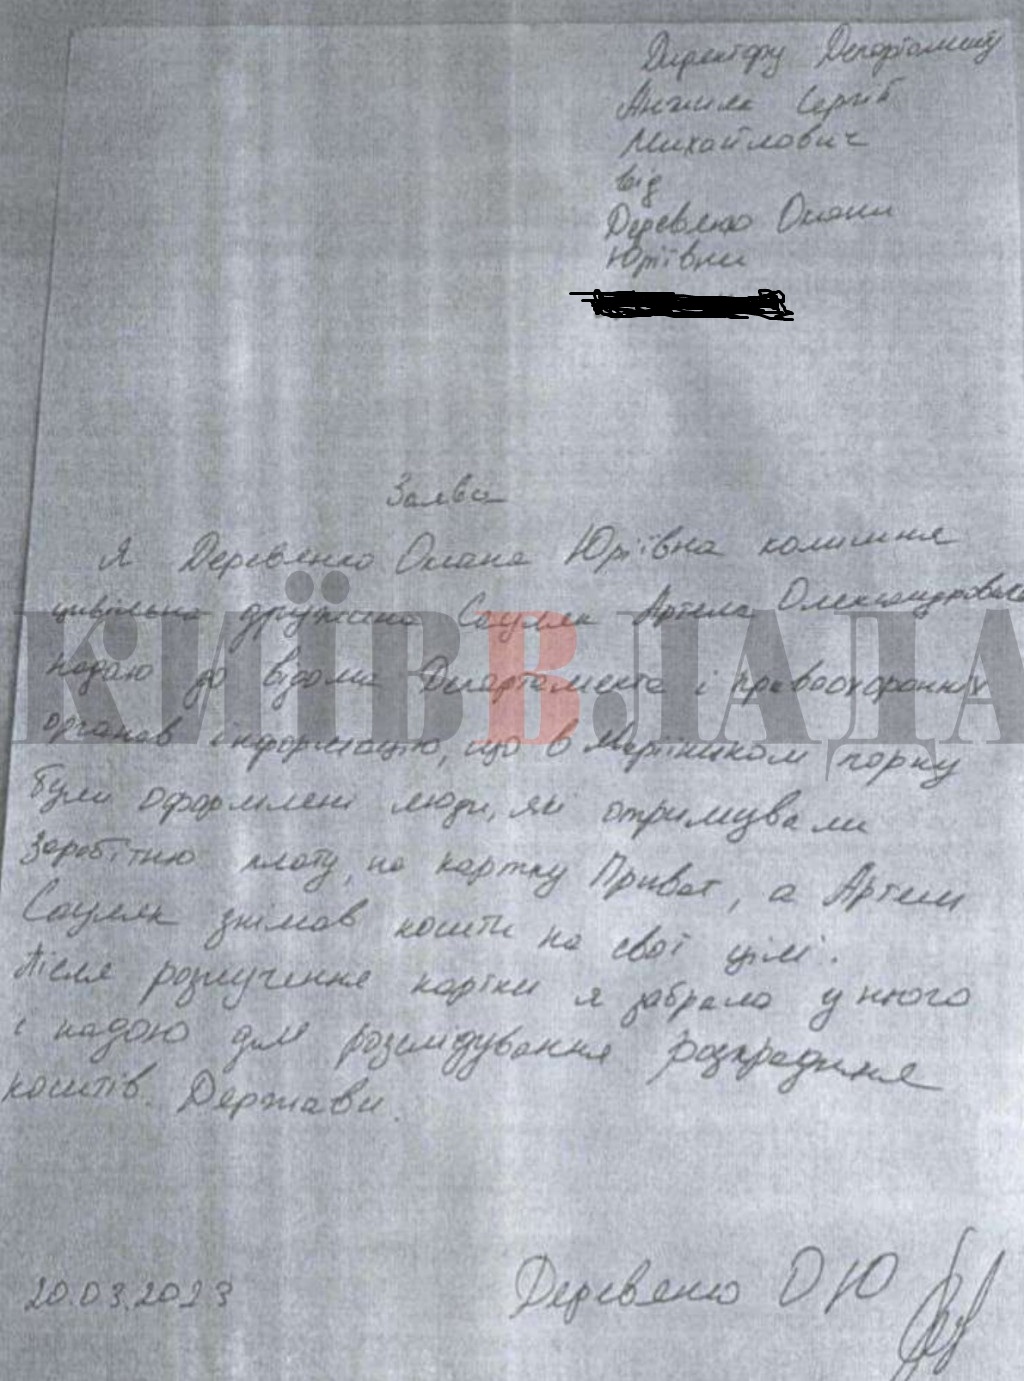 Директору Департаменту
Анжияк Сергій
Михайлович
від
Деревянко Оксани
Юріївни
Заява
Я Деревянко Оксана Юріївна колишня
цивільна дружина Сауляк Артема Олександровича
надаю до відома Департамента і правоохоронних
КИЇВВЛАДА
органав інформацію, що в Маріїнском парку
були оформлені люди, які отримували
заробітню плату, на картку Приват, а Артем
Сауляк знімав кошти на свої цілі.
Після розлучення картки я забрала у нього
і надаю для розслідування розкрадання
коштів. Держави.
20.03.2023
Деревянко О Ю